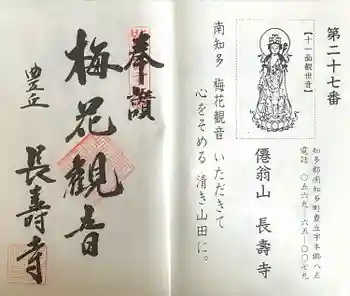 第二十七番
知多郡南知多町豊丘字本郷八五
電話 〇五六九-六五-〇〇七九
【十一面観世音】
僊翁山 長壽寺
南知多 梅花観音 いただきて
心をそめる 清き山田に。
奉讃
梅花観音
豊丘
長壽寺